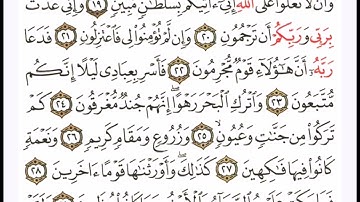 وَأَن لَّا تَعْلُوا۟ عَلَى ٱللَّهِ إِنِّىٓ ءَاتِيكُم بِسُلْطَـٰنٍ مُّبِينٍ ١٩ وَإِنِّى عُذْتُ
بِرَبِّى وَرَبِّكُمْ أَن تَرْجُمُونِ ٢٠ وَإِن لَّمْ تُؤْمِنُوا۟ لِى فَٱعْتَزِلُونِ ٢١ فَدَعَا
رَبَّهُۥٓ أَنَّ هَـٰٓؤُلَآءِ قَوْمٌ مُّجْرِمُونَ ٢٢ فَأَسْرِ بِعِبَادِى لَيْلًا إِنَّكُم
مُّتَّبَعُونَ ٢٣ وَٱتْرُكِ ٱلْبَحْرَ رَهْوًا إِنَّهُمْ جُندٌ مُّغْرَقُونَ ٢٤ كَمْ
تَرَكُوا۟ مِن جَنَّـٰتٍ وَعُيُونٍ ٢٥ وَزُرُوعٍ وَمَقَامٍ كَرِيمٍ ٢٦ وَنَعْمَةٍ
كَانُوا۟ فِيهَا فَـٰكِهِينَ ٢٧ كَذَٰلِكَ وَأَوْرَثْنَـٰهَا قَوْمًا ءَاخَرِينَ ٢٨